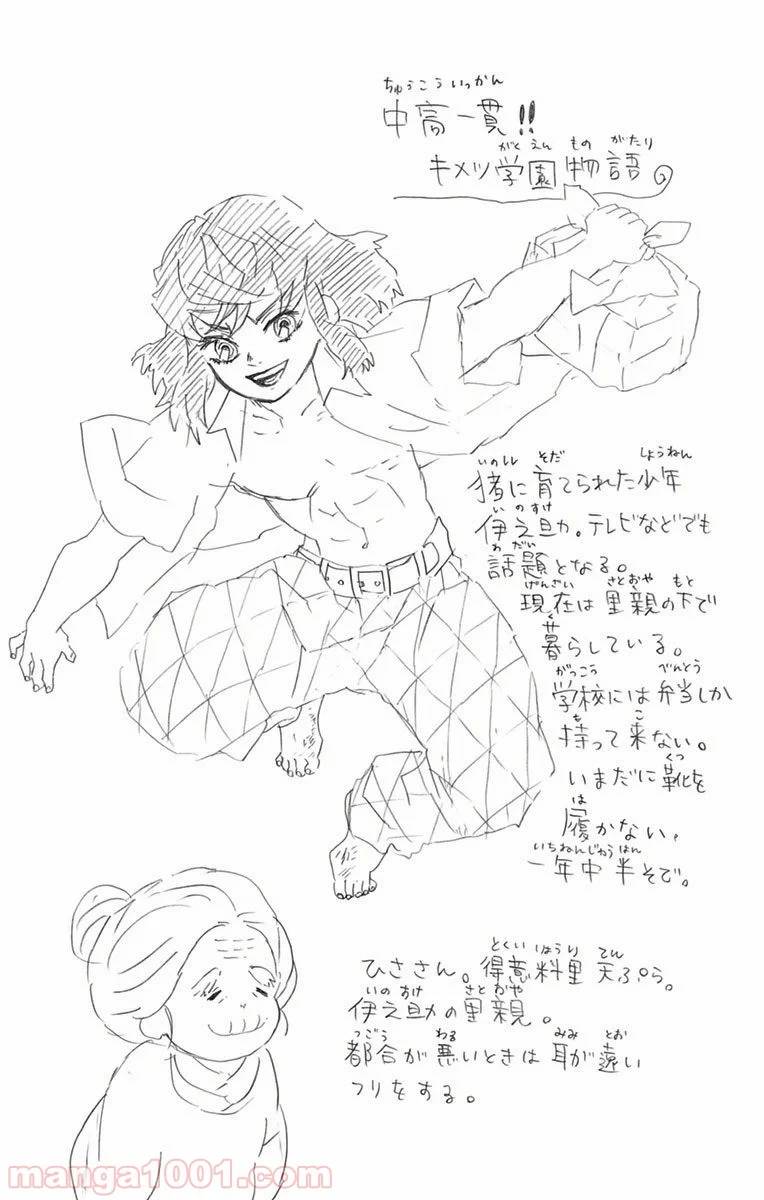 ちゅうこういっかん
中高一貫!!
がくえん ものがたり
キメツ学園物語
いのしし そだ しょうねん
猪に育てられた少年
いのすけ
伊之助。テレビなどでも
わだい
話題となる。
げんざい さとおや もと
現在は里親の下で
く
暮らしている。
がっこう べんとう
学校には弁当しか
も こ
持って来ない。
くつ
いまだに靴を
は
履かない、
いちねんじゅうはん
一年中半そで。
とくいりょうり てん
ひささん。得意料理天ぷら。
いのすけ さとおや
伊之助の里親。
つごう わる みみ とお
都合が悪いときは耳が遠い
フリをする。
manga1001.com